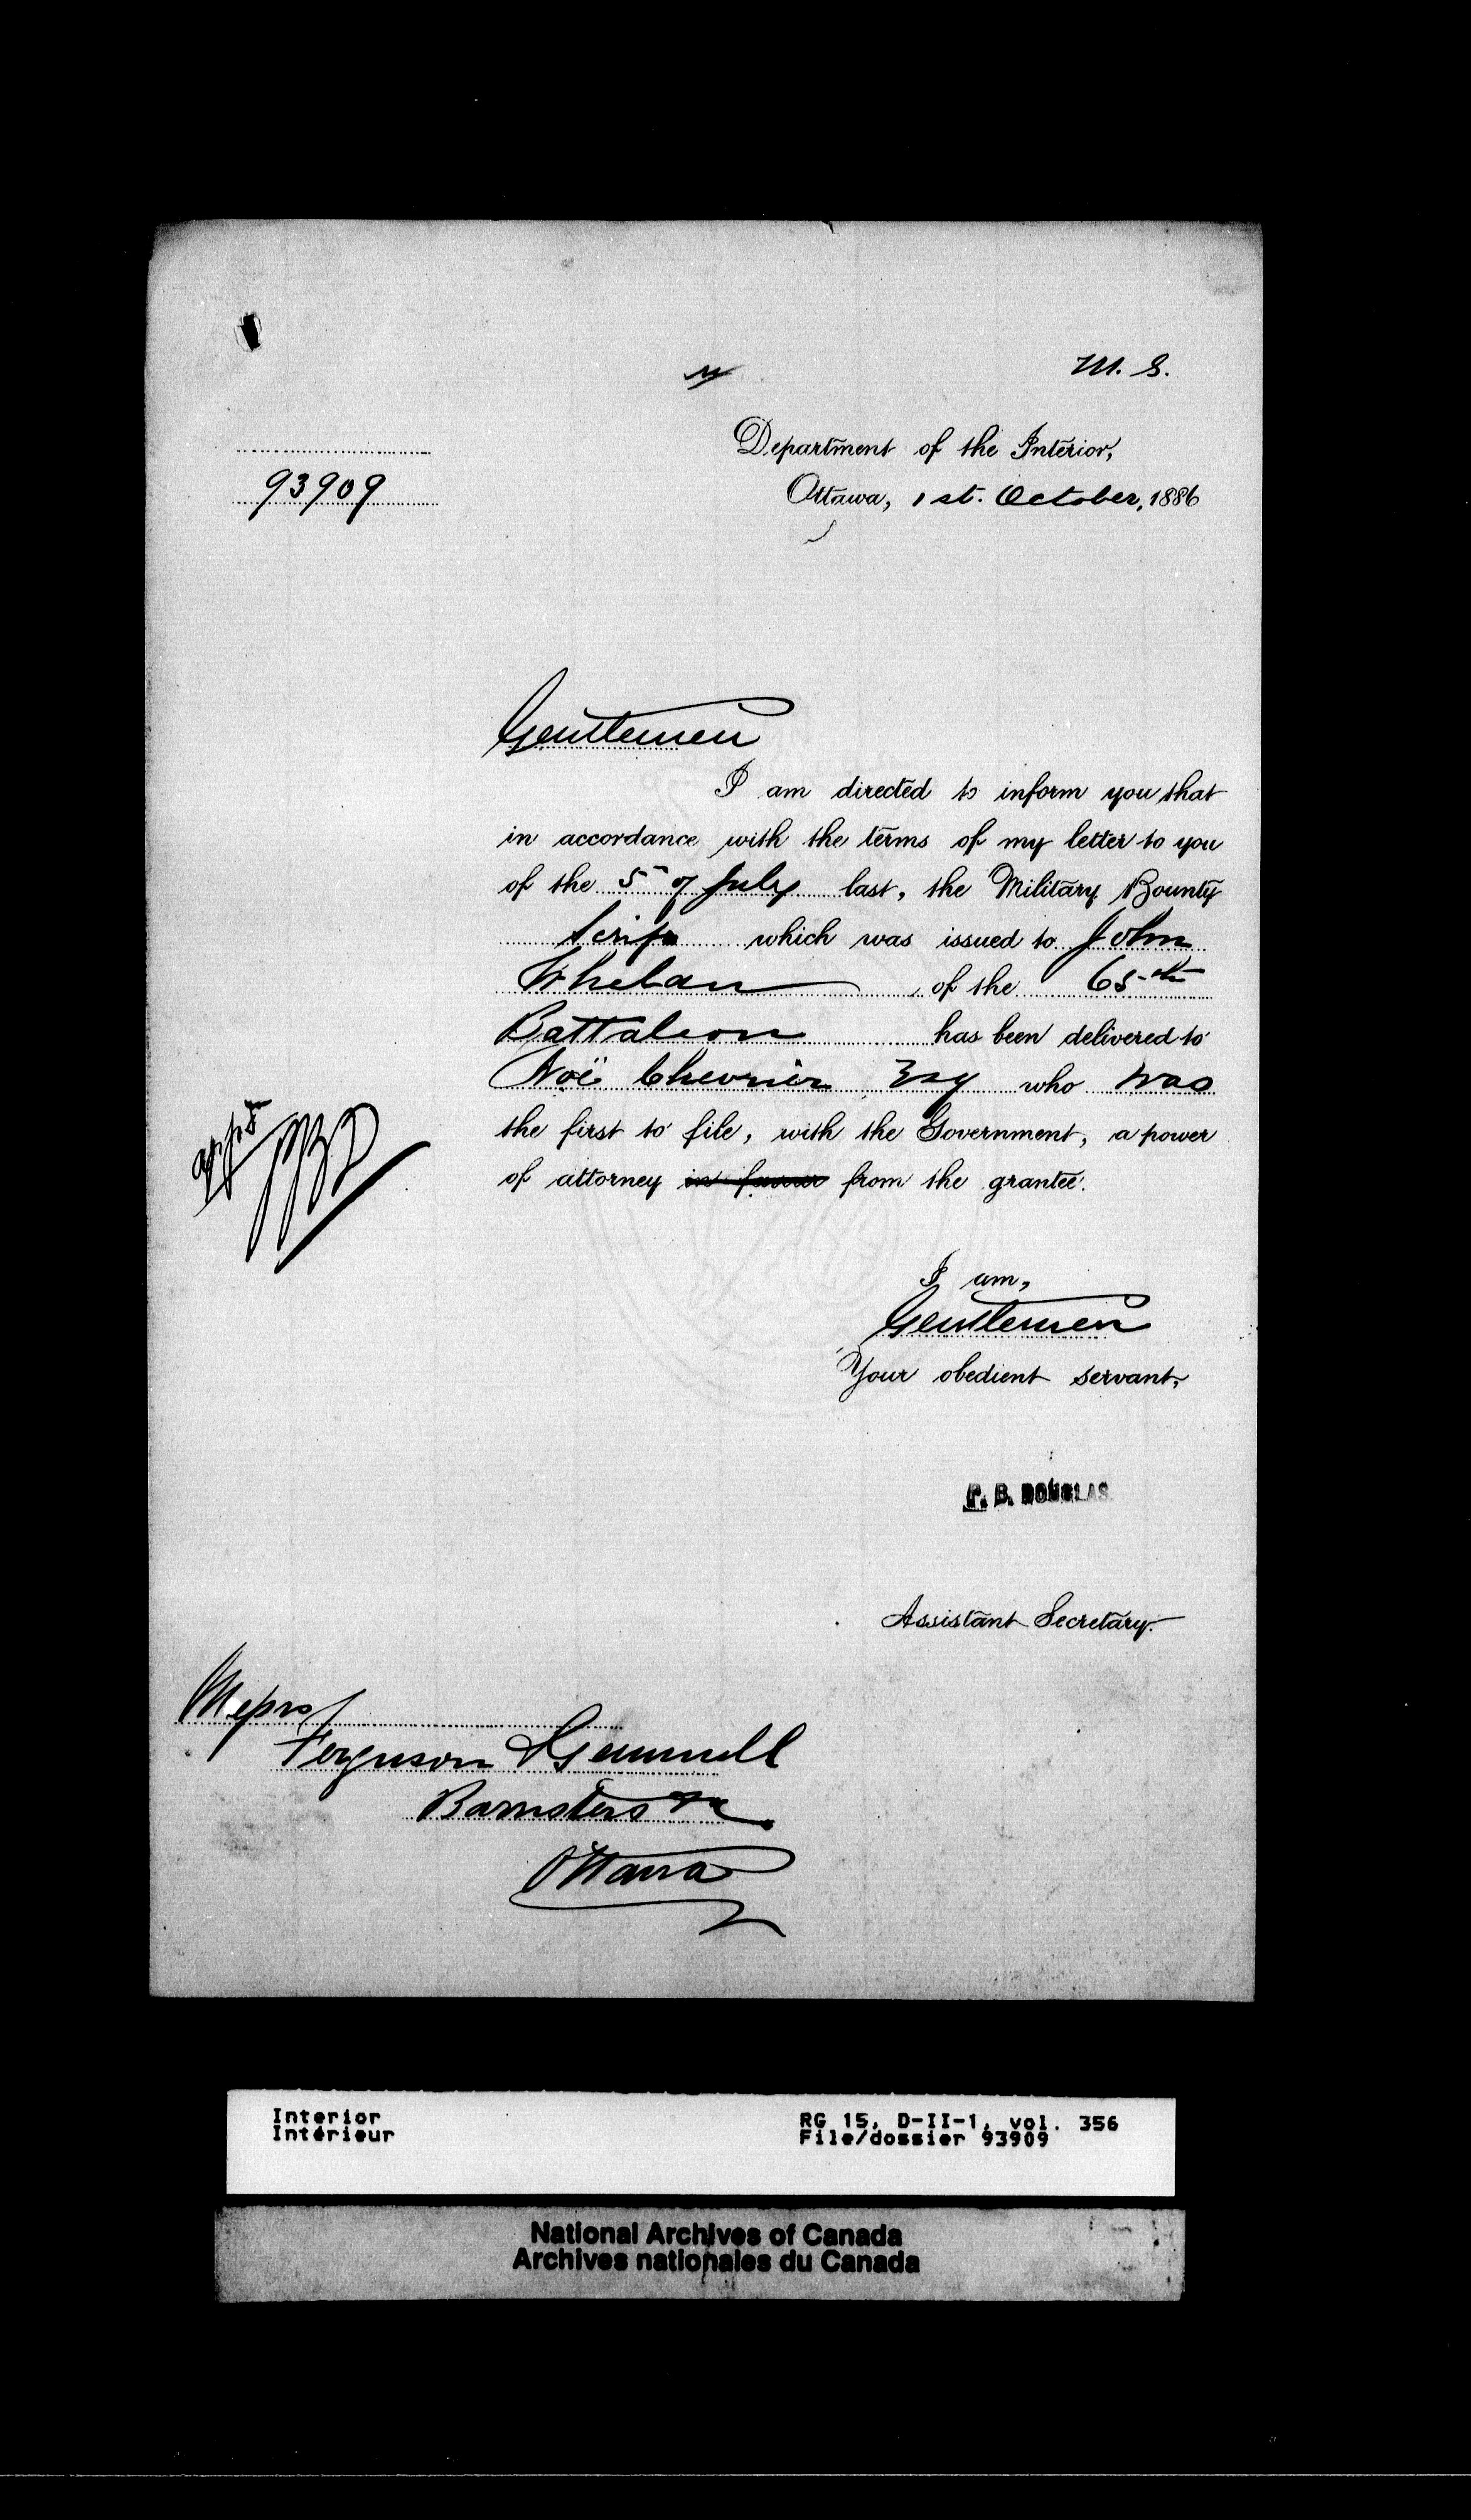 M. S.
Department of the Interior,
93909
Ottawa, 1st. October, 1886
Gentlemen
I am directed to inform you that
in accordance with the terms of my letter to you
of the 5th of July last, the Military Bounty
Scrip which was issued to John
Whelan of the 65th
Battalion has been delivered to
Noë Chevrier Esq who was
the first to file, with the Government, a power
of attorney in favour from the grantee.
I am,
Gentlemen
Your obedient servant,
P. B. DOUGLAS
Assistant Secretary.
Messrs
Ferguson & Gemmell
Barristers &c
Ottawa
Interior
Intérieur
RG 15, D-II-1, vol. 356
File/dossier 93909
National Archives of Canada
Archives nationales du Canada